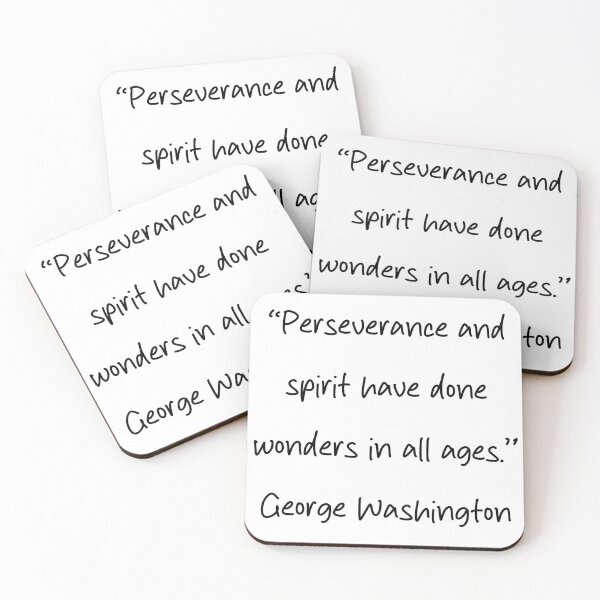 “Perseverance and
spirit have done
all ag
“Perseverance and
spirit have done
wonders in all ages.”
ton
“Perseverance and
spirit have done
wonders in all es.”
George Was
“Perseverance and
spirit have done
wonders in all ages.”
George Washington